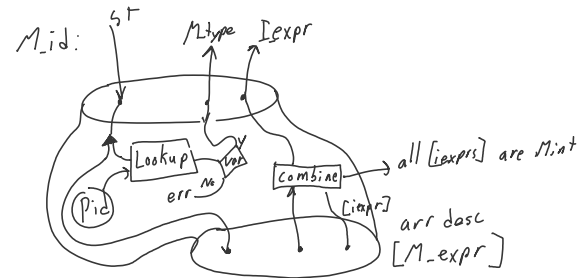 M_id:
st
M_type
I_expr
Lookup
Var
No
err
Pid
combine
all [iexprs] are M_int
[iexpr]
arr desc
[M_expr]